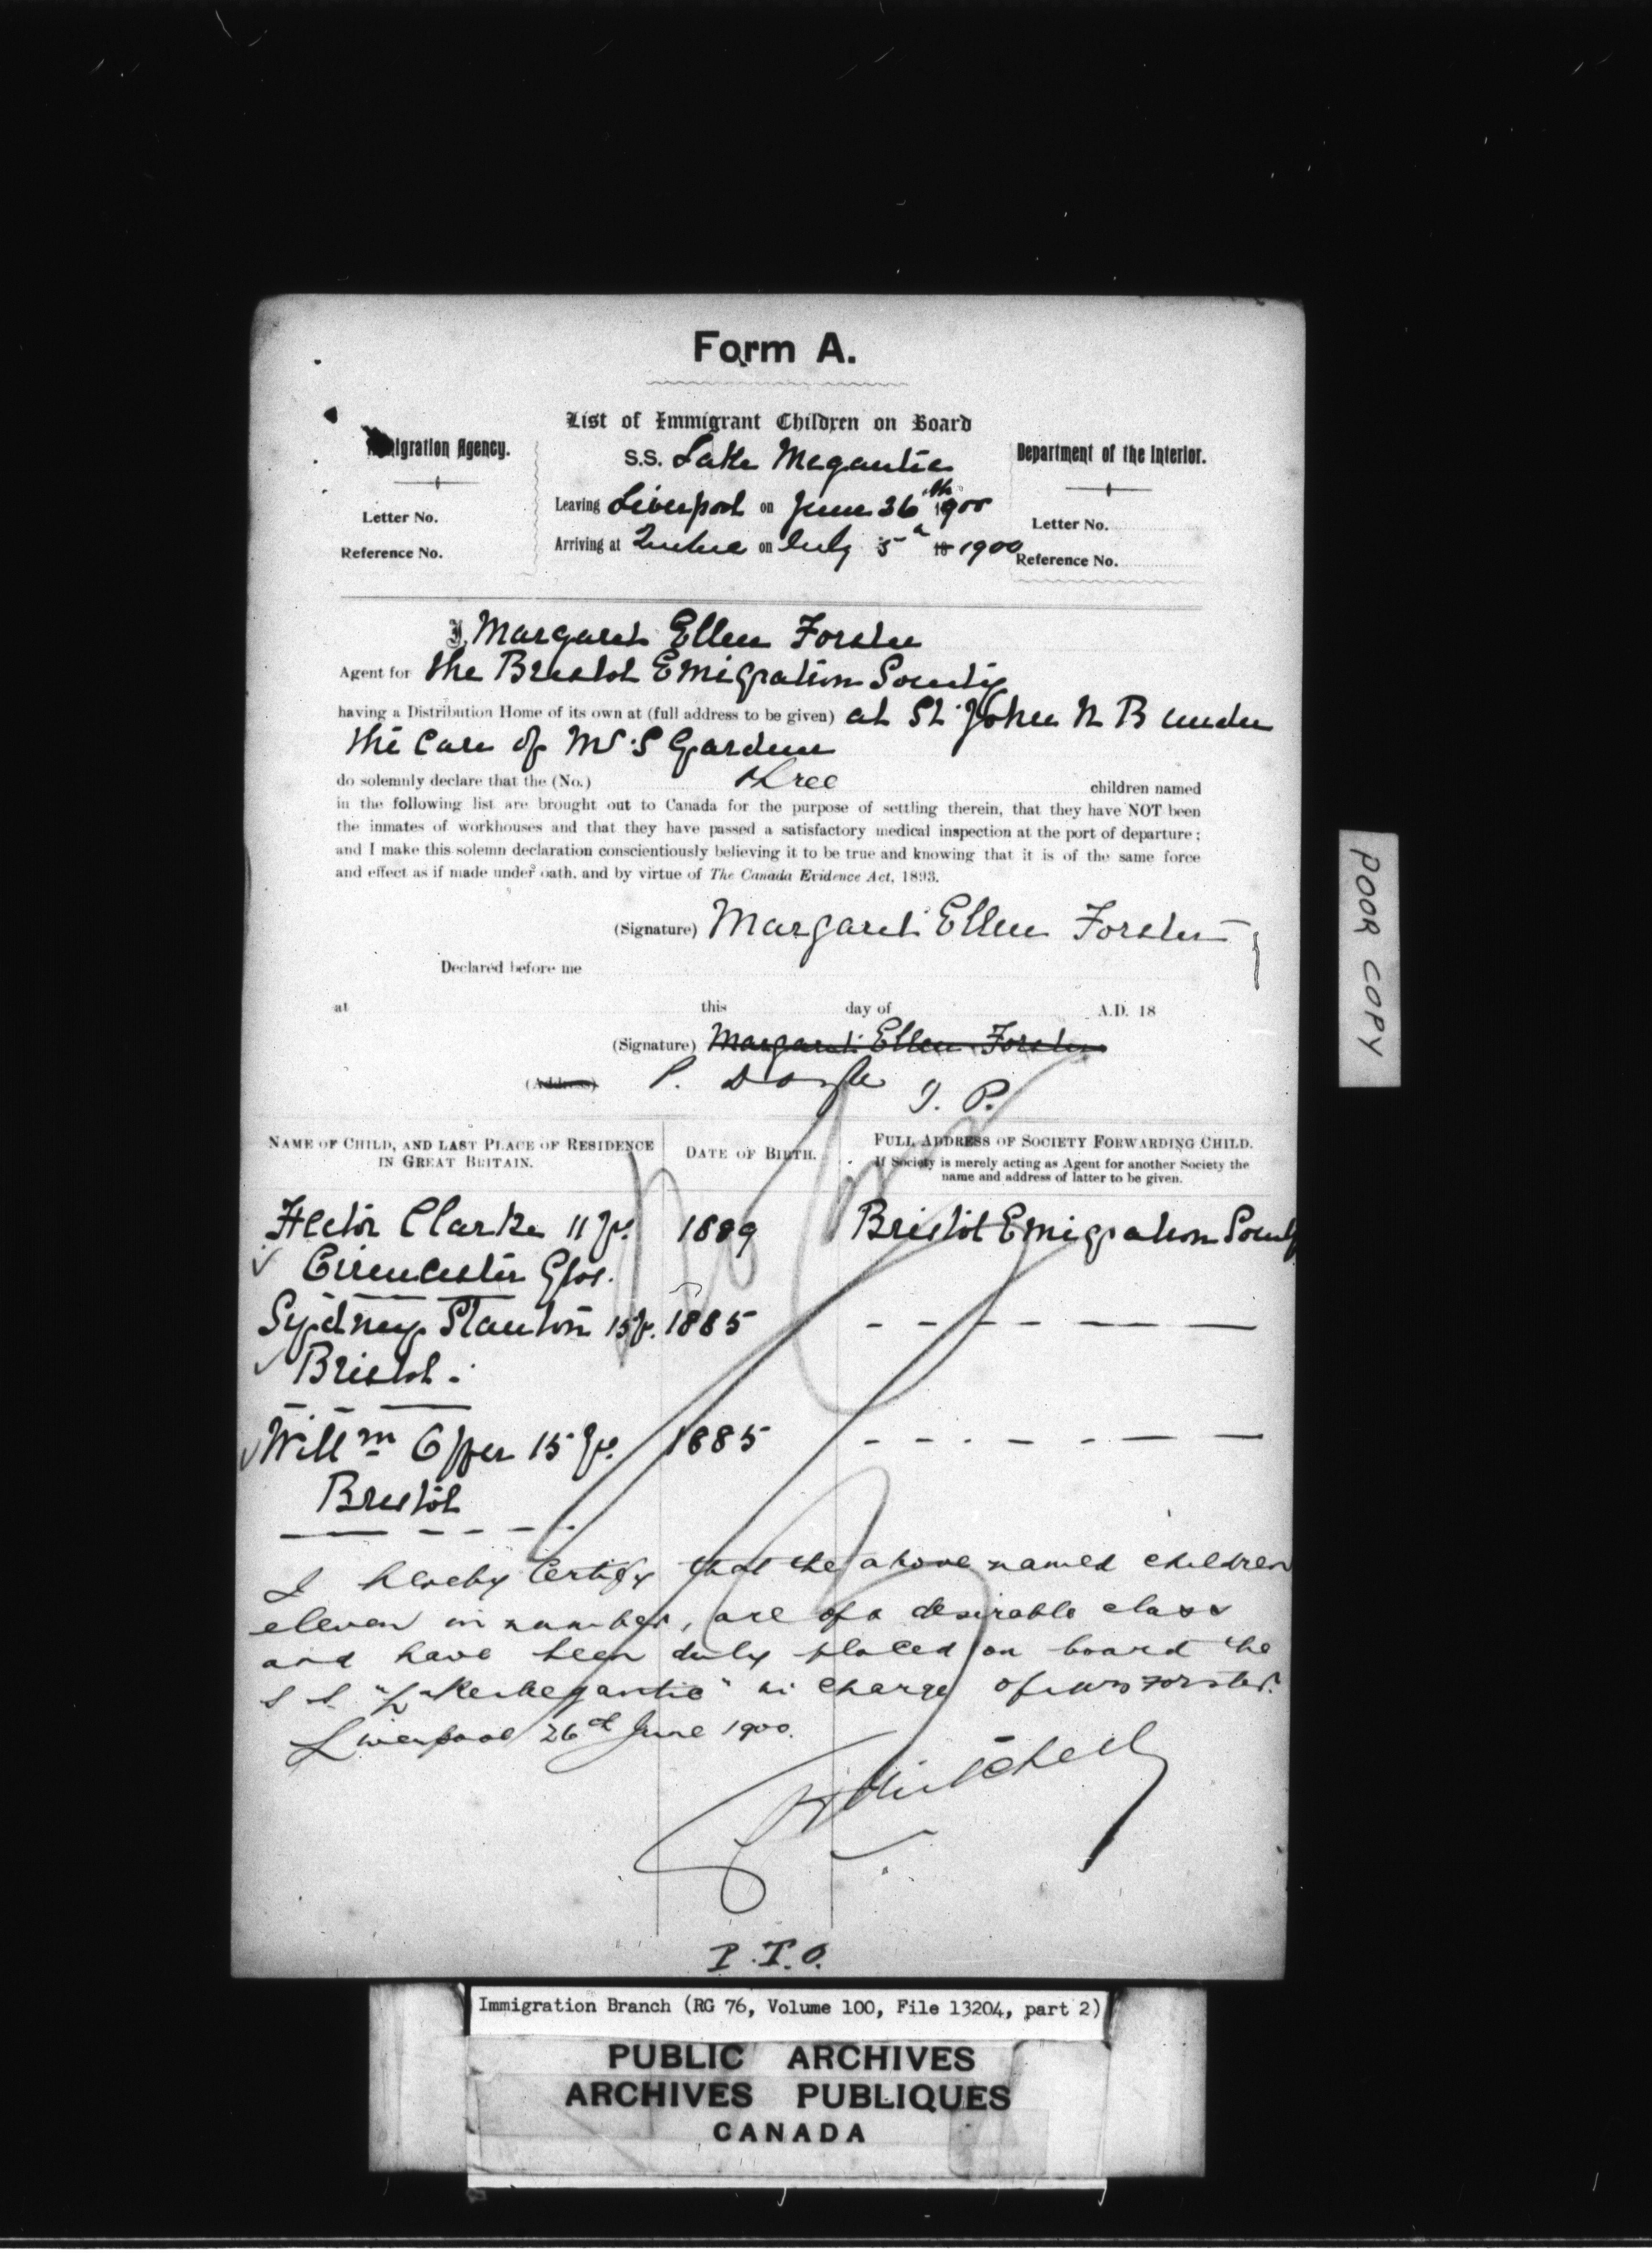 Form A.
List of Immigrant Children on Board
S.S. Lake Megantic
Immigration Agency.
Letter No.
Reference No.
Leaving Liverpool on June 26th 1900
Arriving at Quebec on July 5th 18 1900
Department of the Interior.
Letter No.
Reference No.
I, Margaret Ellen Forster
Agent for the Bristol Emigration Society
having a Distribution Home of its own at (full address to be given) at St. John N B under
the Care of Mr S Gardner
do solemnly declare that the (No.) three children named
in the following list are brought out to Canada for the purpose of settling therein, that they have NOT been
the inmates of workhouses and that they have passed a satisfactory medical inspection at the port of departure;
and I make this solemn declaration conscientiously believing it to be true and knowing that it is of the same force
and effect as if made under oath, and by virtue of The Canada Evidence Act, 1893.
(Signature) Margaret Ellen Forster
Declared before me
at this day of A.D. 18
(Signature) Margaret Ellen Forster
(Address) P. Doyle J. P.
NAME OF CHILD, AND LAST PLACE OF RESIDENCE IN GREAT BRITAIN.
DATE OF BIRTH.
FULL ADDRESS OF SOCIETY FORWARDING CHILD.
If Society is merely acting as Agent for another Society the
name and address of latter to be given.
Hector Clarke 11 yrs. 1889 Bristol Emigration Society
Cirencester Glos.
Sydney Stanton 15 yrs. 1885
Bristol.
Willm 15 yrs. 1885
Bristol
I hereby Certify that the above named children
eleven in number, are of a desirable class
and have been duly placed on board the
S S "Lake Megantic" in charge of Mrs Forster.
Liverpool 26th June 1900.
Mitchell
P.T.O.
POOR COPY
Immigration Branch (RG 76, Volume 100, File 13204, part 2)
PUBLIC ARCHIVES
ARCHIVES PUBLIQUES
CANADA